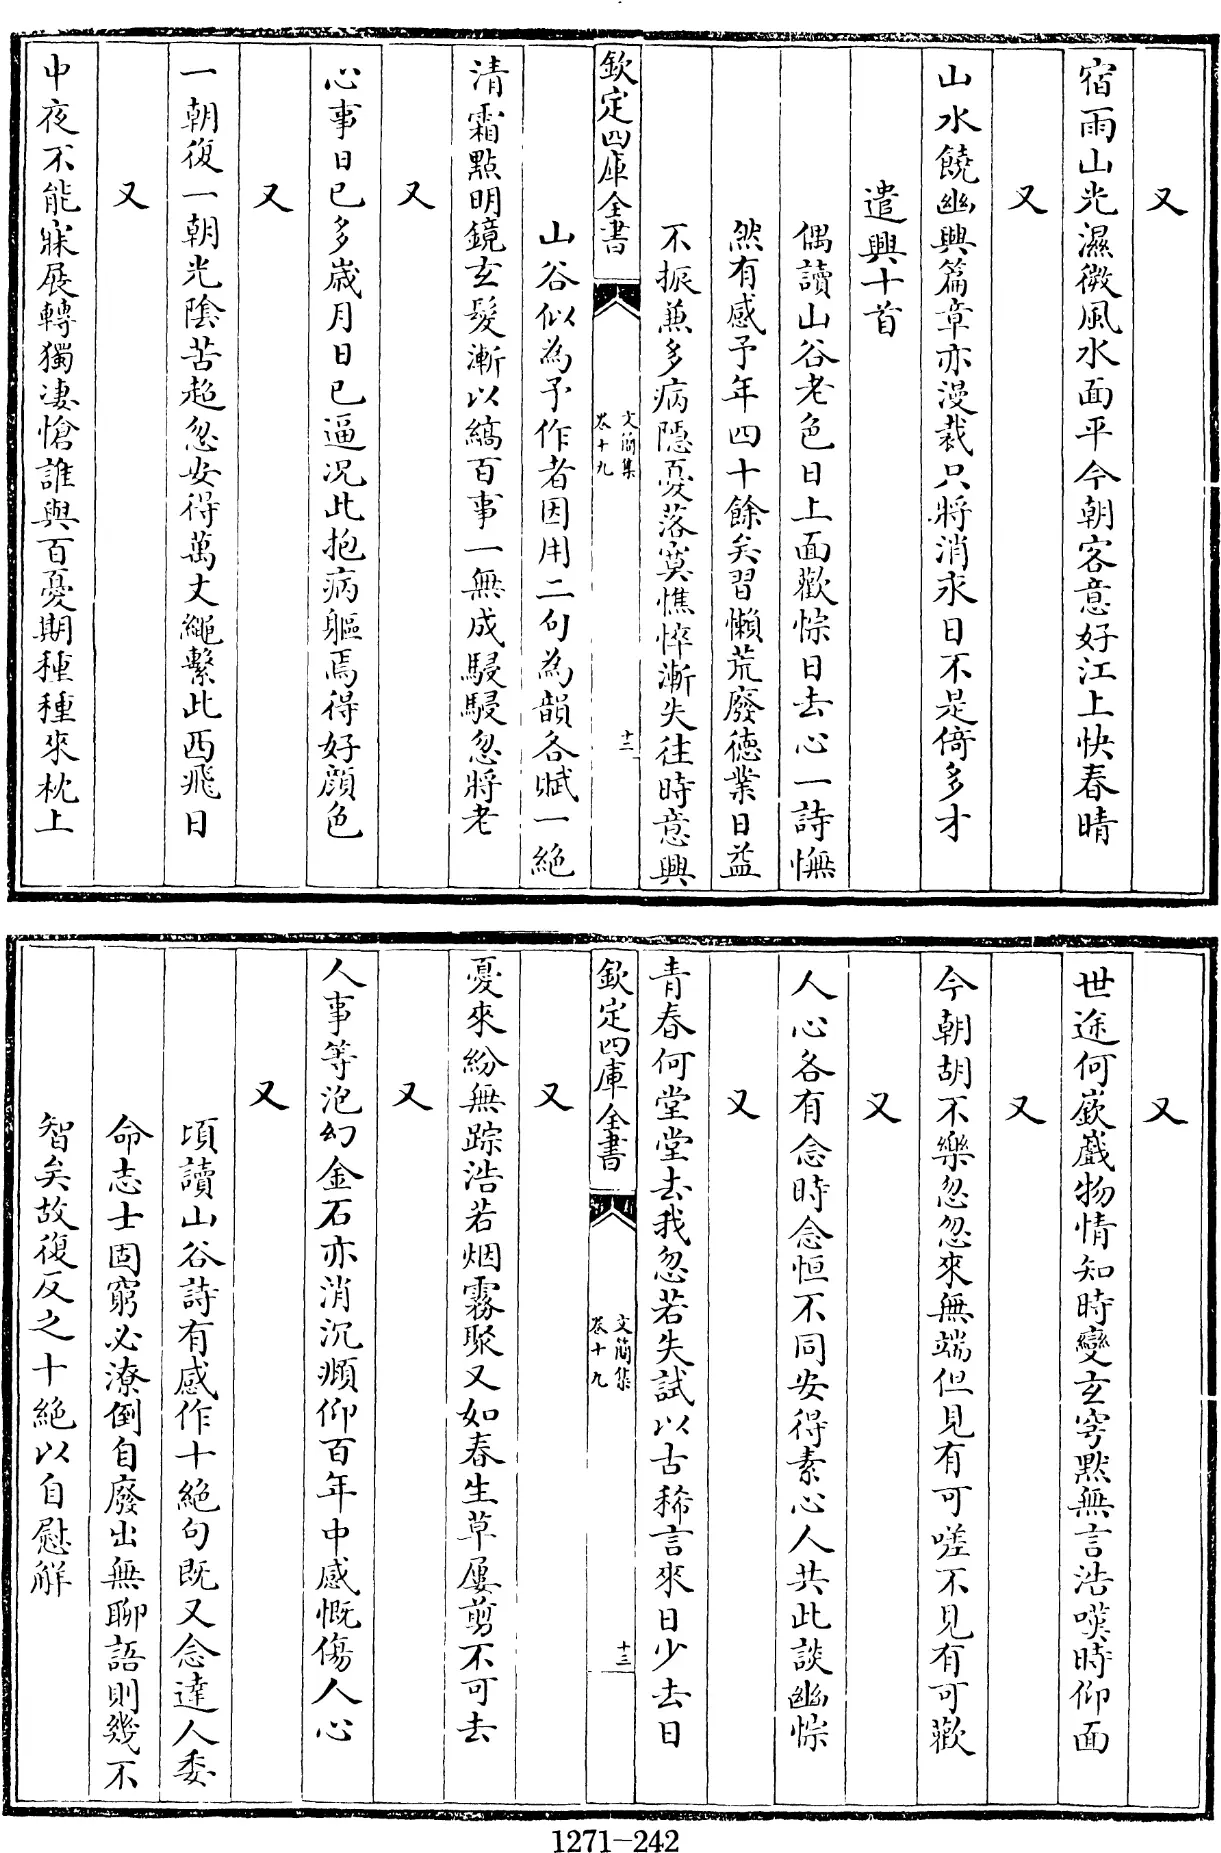 又
宿雨山光濕微風水面平今朝客意好江上快春晴
又
山水饒幽興篇章亦漫裁只將消永日不是倚多才
遣興十首
偶讀山谷老色日上面歡悰日去心一詩憮
然有感予年四十餘矣習懶荒廢德業日益
不振兼多病隱憂落寞憔悴漸失往時意興
欽定四庫全書
文簡集
卷十九
十二
山谷似為予作者因用二句為韻各賦一絶
清霜點明鏡玄髮漸以縞百事一無成駸駸忽將老
又
心事日已多歳月日已逼况此抱病軀焉得好顔色
又
一朝復一朝光隂苦超忽安得萬丈繩繫此西飛日
又
中夜不能寐展轉獨凄愴誰與百憂期種種來枕上
又
世途何嶔戲物情知時變玄穹黙無言浩嘆時仰面
又
今朝胡不樂忽忽來無端但見有可嗟不見有可歡
又
人心各有念時念恒不同安得素心人共此談幽悰
又
青春何堂堂去我忽若失試以古稀言來日少去日
欽定四庫全書
文簡集
卷十九
十三
又
憂來紛無踪浩若烟霧聚又如春生草屢剪不可去
又
人事等泡幻金石亦消沉頫仰百年中感慨傷人心
又
頃讀山谷詩有感作十絶句既又念達人委
命志士固窮必潦倒自廢出無聊語則幾不
智矣故復反之十絶以自慰解
1271-242